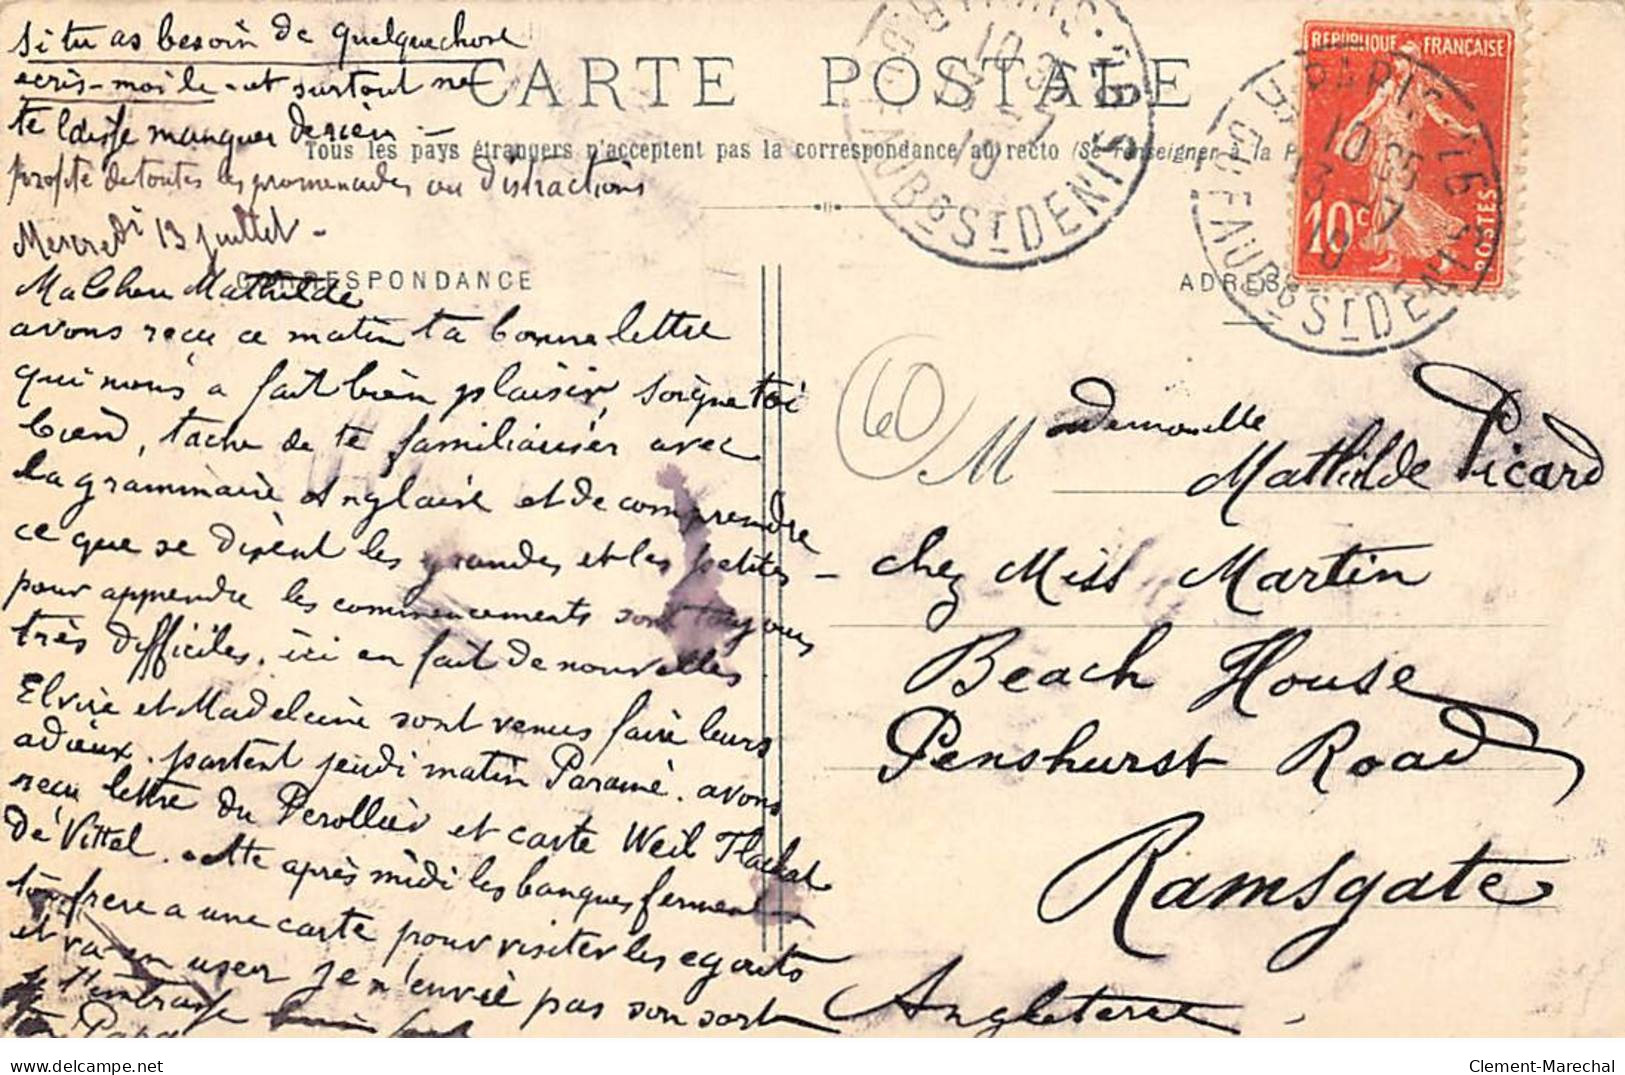 Si tu as besoin de quelquechose
ecris-moi le - et surtout ne
te laisse manquer de rien -
profite de toutes les promenades ou distractions
Mercredi 13 Juillet -
CARTE POSTALE
Tous les pays étrangers n'acceptent pas la correspondance au recto (Se renseigner à la P
CORRESPONDANCE
Ma Chere Mathilde
avons reçu ce matin ta bonne lettre
qui nous a fait bien plaisir, soigne toi
bien, tache de te familiariser avec
la grammaire Anglaise et de comprendre
ce que se disent les grandes et les petites -
pour apprendre les commencements sont toujours
très difficiles. ici en fait de nouvelles
Elvire et Madeleine sont venus faire leurs
adieux. partent jeudi matin Paramé. avons
reçu lettre du Perollier et carte Weil Flachat
de Vittel. cette après midi les banques ferment
ton frere a une carte pour visiter les egouts
et va en user je n'envie pas son sort
je t'embrasse
ton Papa
ADRESSE
Mademoiselle
Mathilde Picard
chez Miss Martin
Beach House
Penshurst Road
Ramsgate
Angleterre.
60
REPUBLIQUE FRANÇAISE
10c POSTES
PARIS
FAUBG ST DENIS
10 35
13 - 7
10
Clement-Marechal
delcampe.net